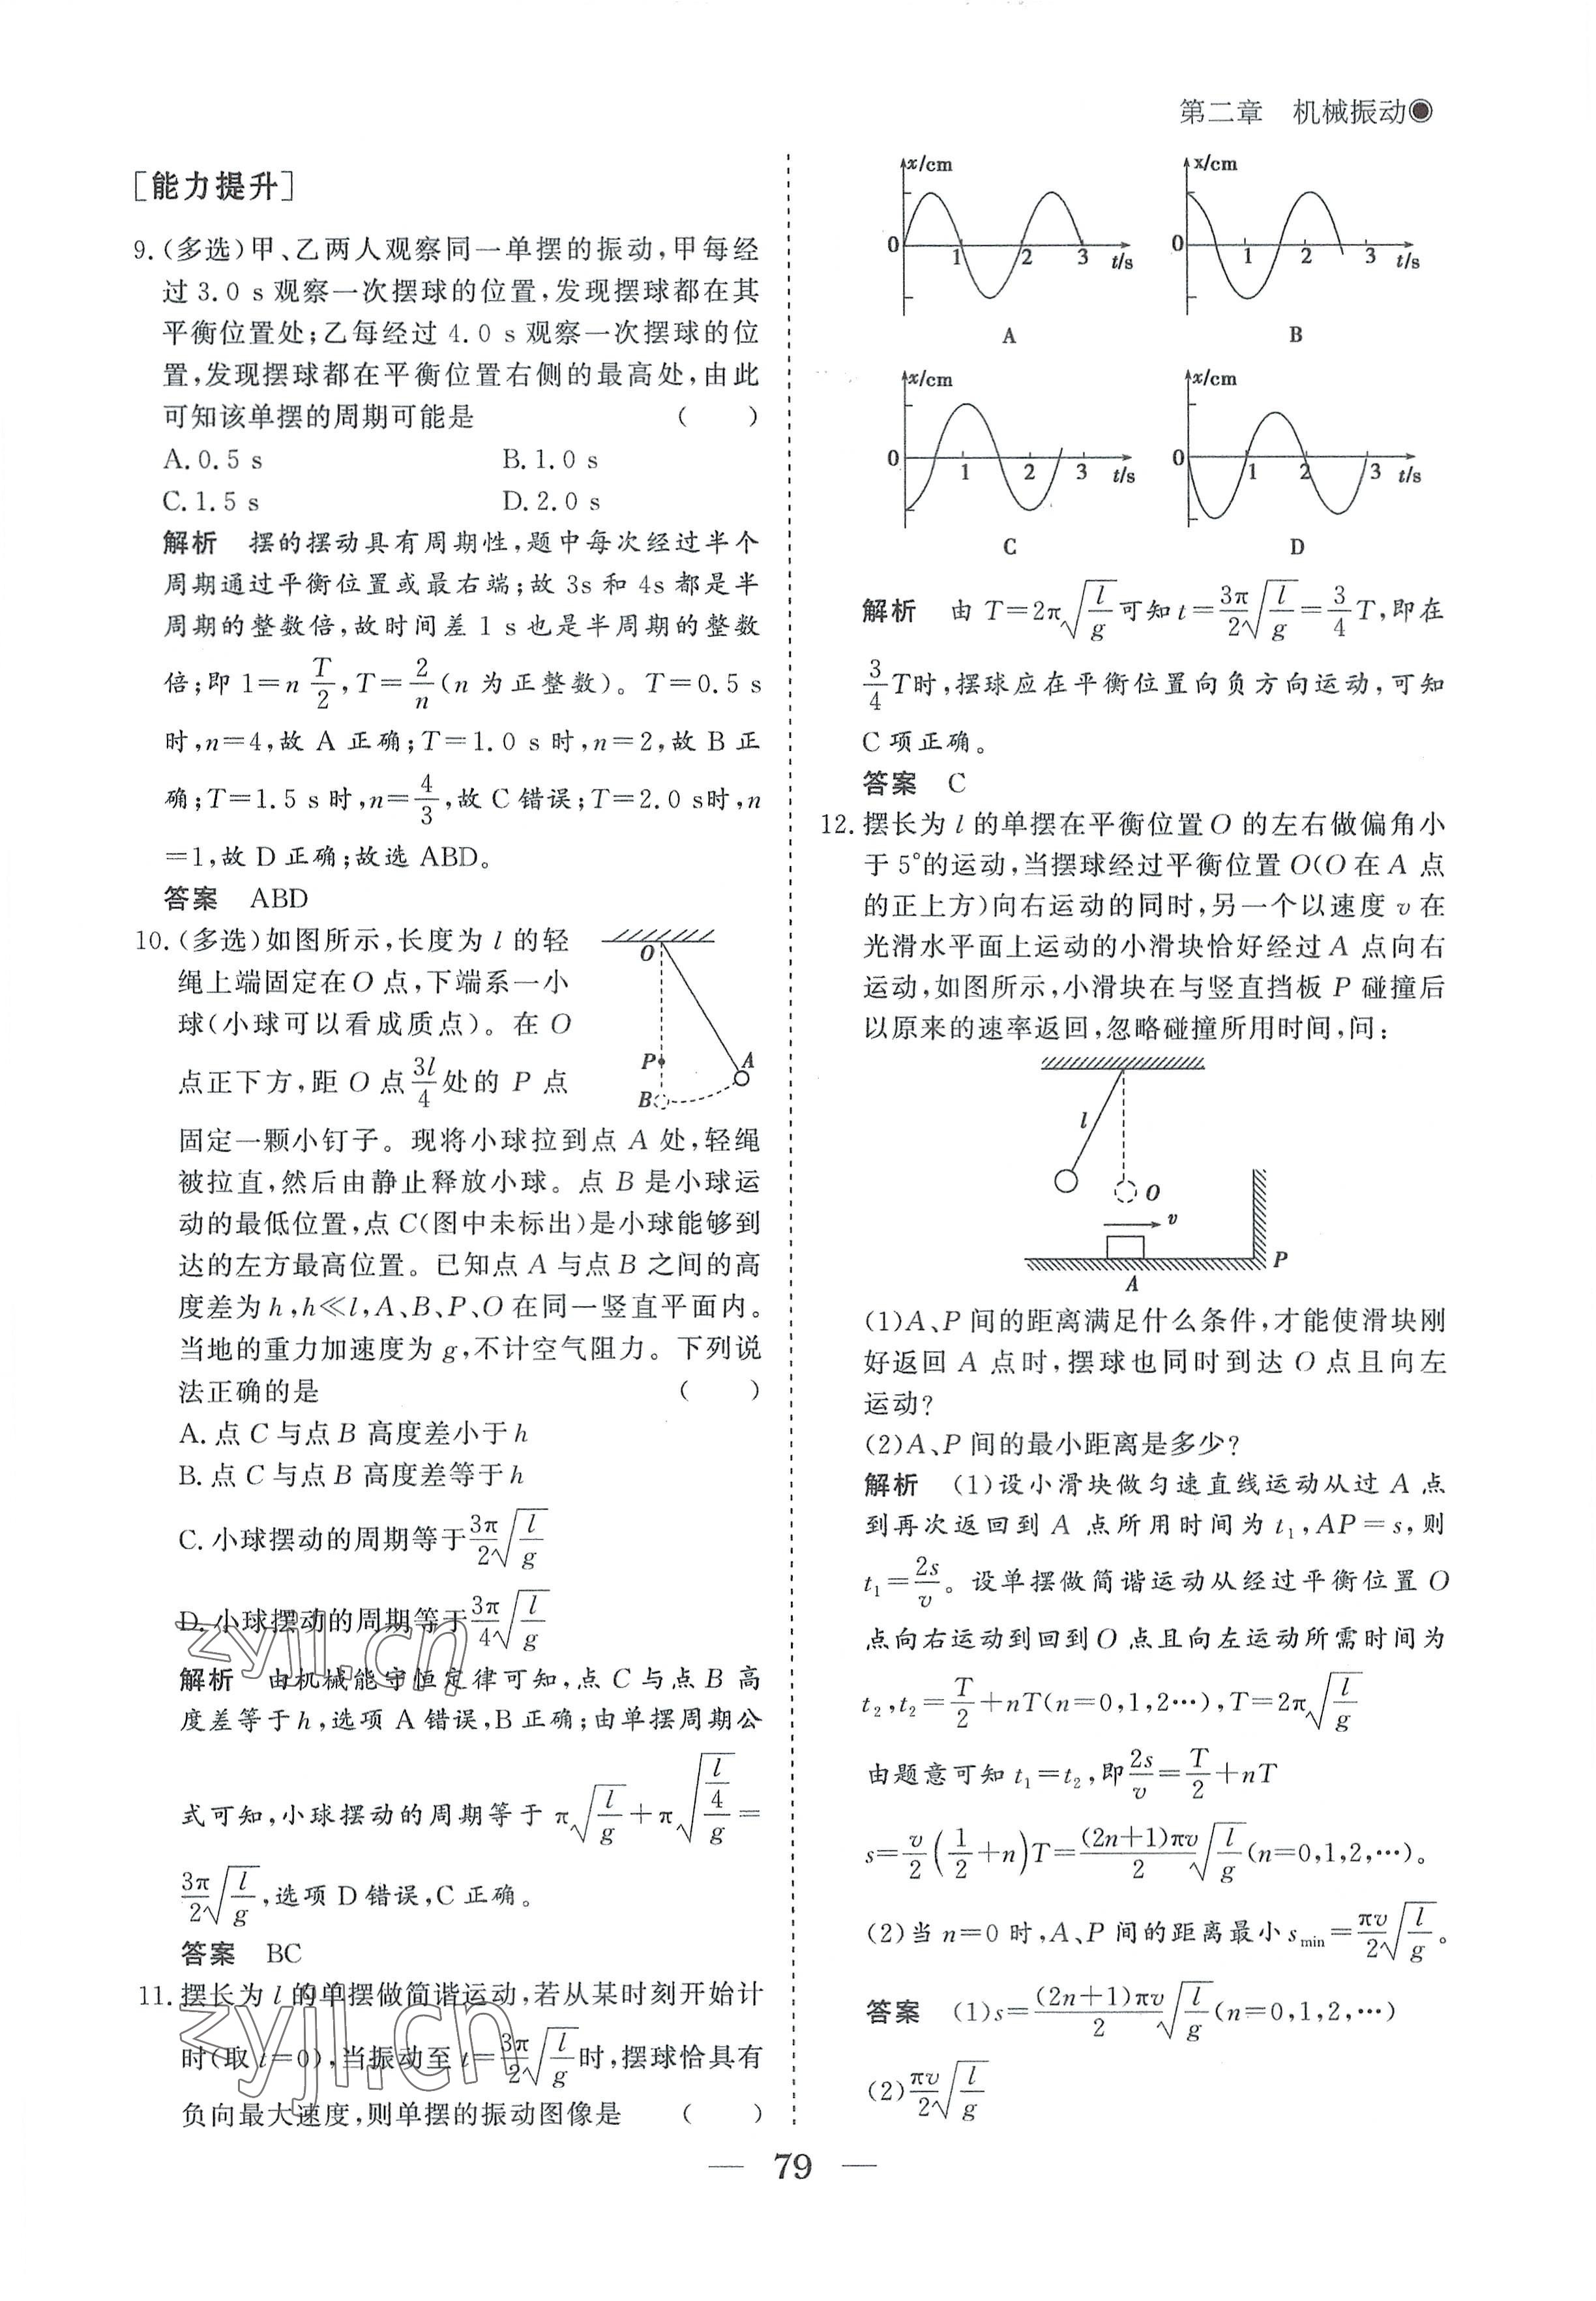 第二章 机械振动
[能力提升]
9.(多选)甲、乙两人观察同一单摆的振动,甲每经
过 3.0 s 观察一次摆球的位置,发现摆球都在其
平衡位置处;乙每经过 4.0 s 观察一次摆球的位
置,发现摆球都在平衡位置右侧的最高处,由此
可知该单摆的周期可能是 ( )
A.0.5 s B.1.0 s
C.1.5 s D.2.0 s
解析 摆的摆动具有周期性,题中每次经过半个
周期通过平衡位置或最右端;故 3s 和 4s 都是半
周期的整数倍,故时间差 1 s 也是半周期的整数
倍;即 1=n T/2,T=2/n(n 为正整数)。T=0.5 s
时,n=4,故 A 正确;T=1.0 s 时,n=2,故 B 正
确;T=1.5 s 时,n=4/3,故 C 错误;T=2.0 s时,n
=1,故 D 正确;故选 ABD。
答案 ABD
10.(多选)如图所示,长度为 l 的轻
绳上端固定在 O 点,下端系一小
球(小球可以看成质点)。在 O
点正下方,距 O 点 3l/4 处的 P 点
固定一颗小钉子。现将小球拉到点 A 处,轻绳
被拉直,然后由静止释放小球。点 B 是小球运
动的最低位置,点 C(图中未标出)是小球能够到
达的左方最高位置。已知点 A 与点 B 之间的高
度差为 h,h≪l,A、B、P、O 在同一竖直平面内。
当地的重力加速度为 g,不计空气阻力。下列说
法正确的是 ( )
O
P
A
B
A.点 C 与点 B 高度差小于 h
B.点 C 与点 B 高度差等于 h
C.小球摆动的周期等于 3π/2 √(l/g)
D.小球摆动的周期等于 3π/4 √(l/g)
解析 由机械能守恒定律可知,点 C 与点 B 高
度差等于 h,选项 A 错误,B 正确;由单摆周期公
式可知,小球摆动的周期等于 π√(l/g)+π√((l/4)/g)=
3π/2 √(l/g),选项 D 错误,C 正确。
答案 BC
11.摆长为 l 的单摆做简谐运动,若从某时刻开始计
时(取 t=0),当振动至 t=3π/2 √(l/g)时,摆球恰具有
负向最大速度,则单摆的振动图像是 ( )
x/cm 0 1 2 3 t/s
A
x/cm 0 1 2 3 t/s
B
x/cm 0 1 2 3 t/s
C
x/cm 0 1 2 3 t/s
D
解析 由 T=2π√(l/g)可知 t=3π/2 √(l/g)=3/4 T,即在
3/4 T时,摆球应在平衡位置向负方向运动,可知
C 项正确。
答案 C
12.摆长为 l 的单摆在平衡位置 O 的左右做偏角小
于 5°的运动,当摆球经过平衡位置 O(O 在 A 点
的正上方)向右运动的同时,另一个以速度 v 在
光滑水平面上运动的小滑块恰好经过 A 点向右
运动,如图所示,小滑块在与竖直挡板 P 碰撞后
以原来的速率返回,忽略碰撞所用时间,问:
l
O
v
P
A
(1)A、P 间的距离满足什么条件,才能使滑块刚
好返回 A 点时,摆球也同时到达 O 点且向左
运动?
(2)A、P 间的最小距离是多少?
解析 (1)设小滑块做匀速直线运动从过 A 点
到再次返回到 A 点所用时间为 t₁,AP=s,则
t₁=2s/v。设单摆做简谐运动从经过平衡位置 O
点向右运动到回到 O 点且向左运动所需时间为
t₂,t₂=T/2+nT(n=0,1,2…),T=2π√(l/g)
由题意可知 t₁=t₂,即2s/v=T/2+nT
s=v/2(1/2+n)T=(2n+1)πv/2 √(l/g)(n=0,1,2,…)。
(2)当 n=0 时,A、P 间的距离最小 s_min=πv/2 √(l/g)。
答案 (1)s=(2n+1)πv/2 √(l/g)(n=0,1,2,…)
(2)πv/2 √(l/g)
zyjl.cn
zyjl.cn
— 79 —